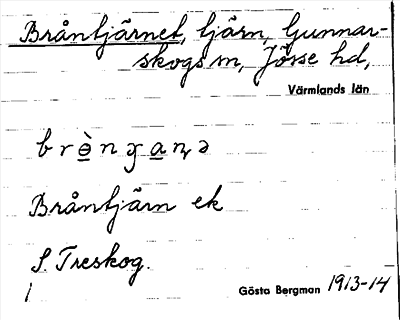 Bråntjärnet, tjärn, Gunnar-
skogs sn, Jösse hd,
Värmlands län
Bråntjärn ek
S. Treskog.
Gösta Bergman 1913-14